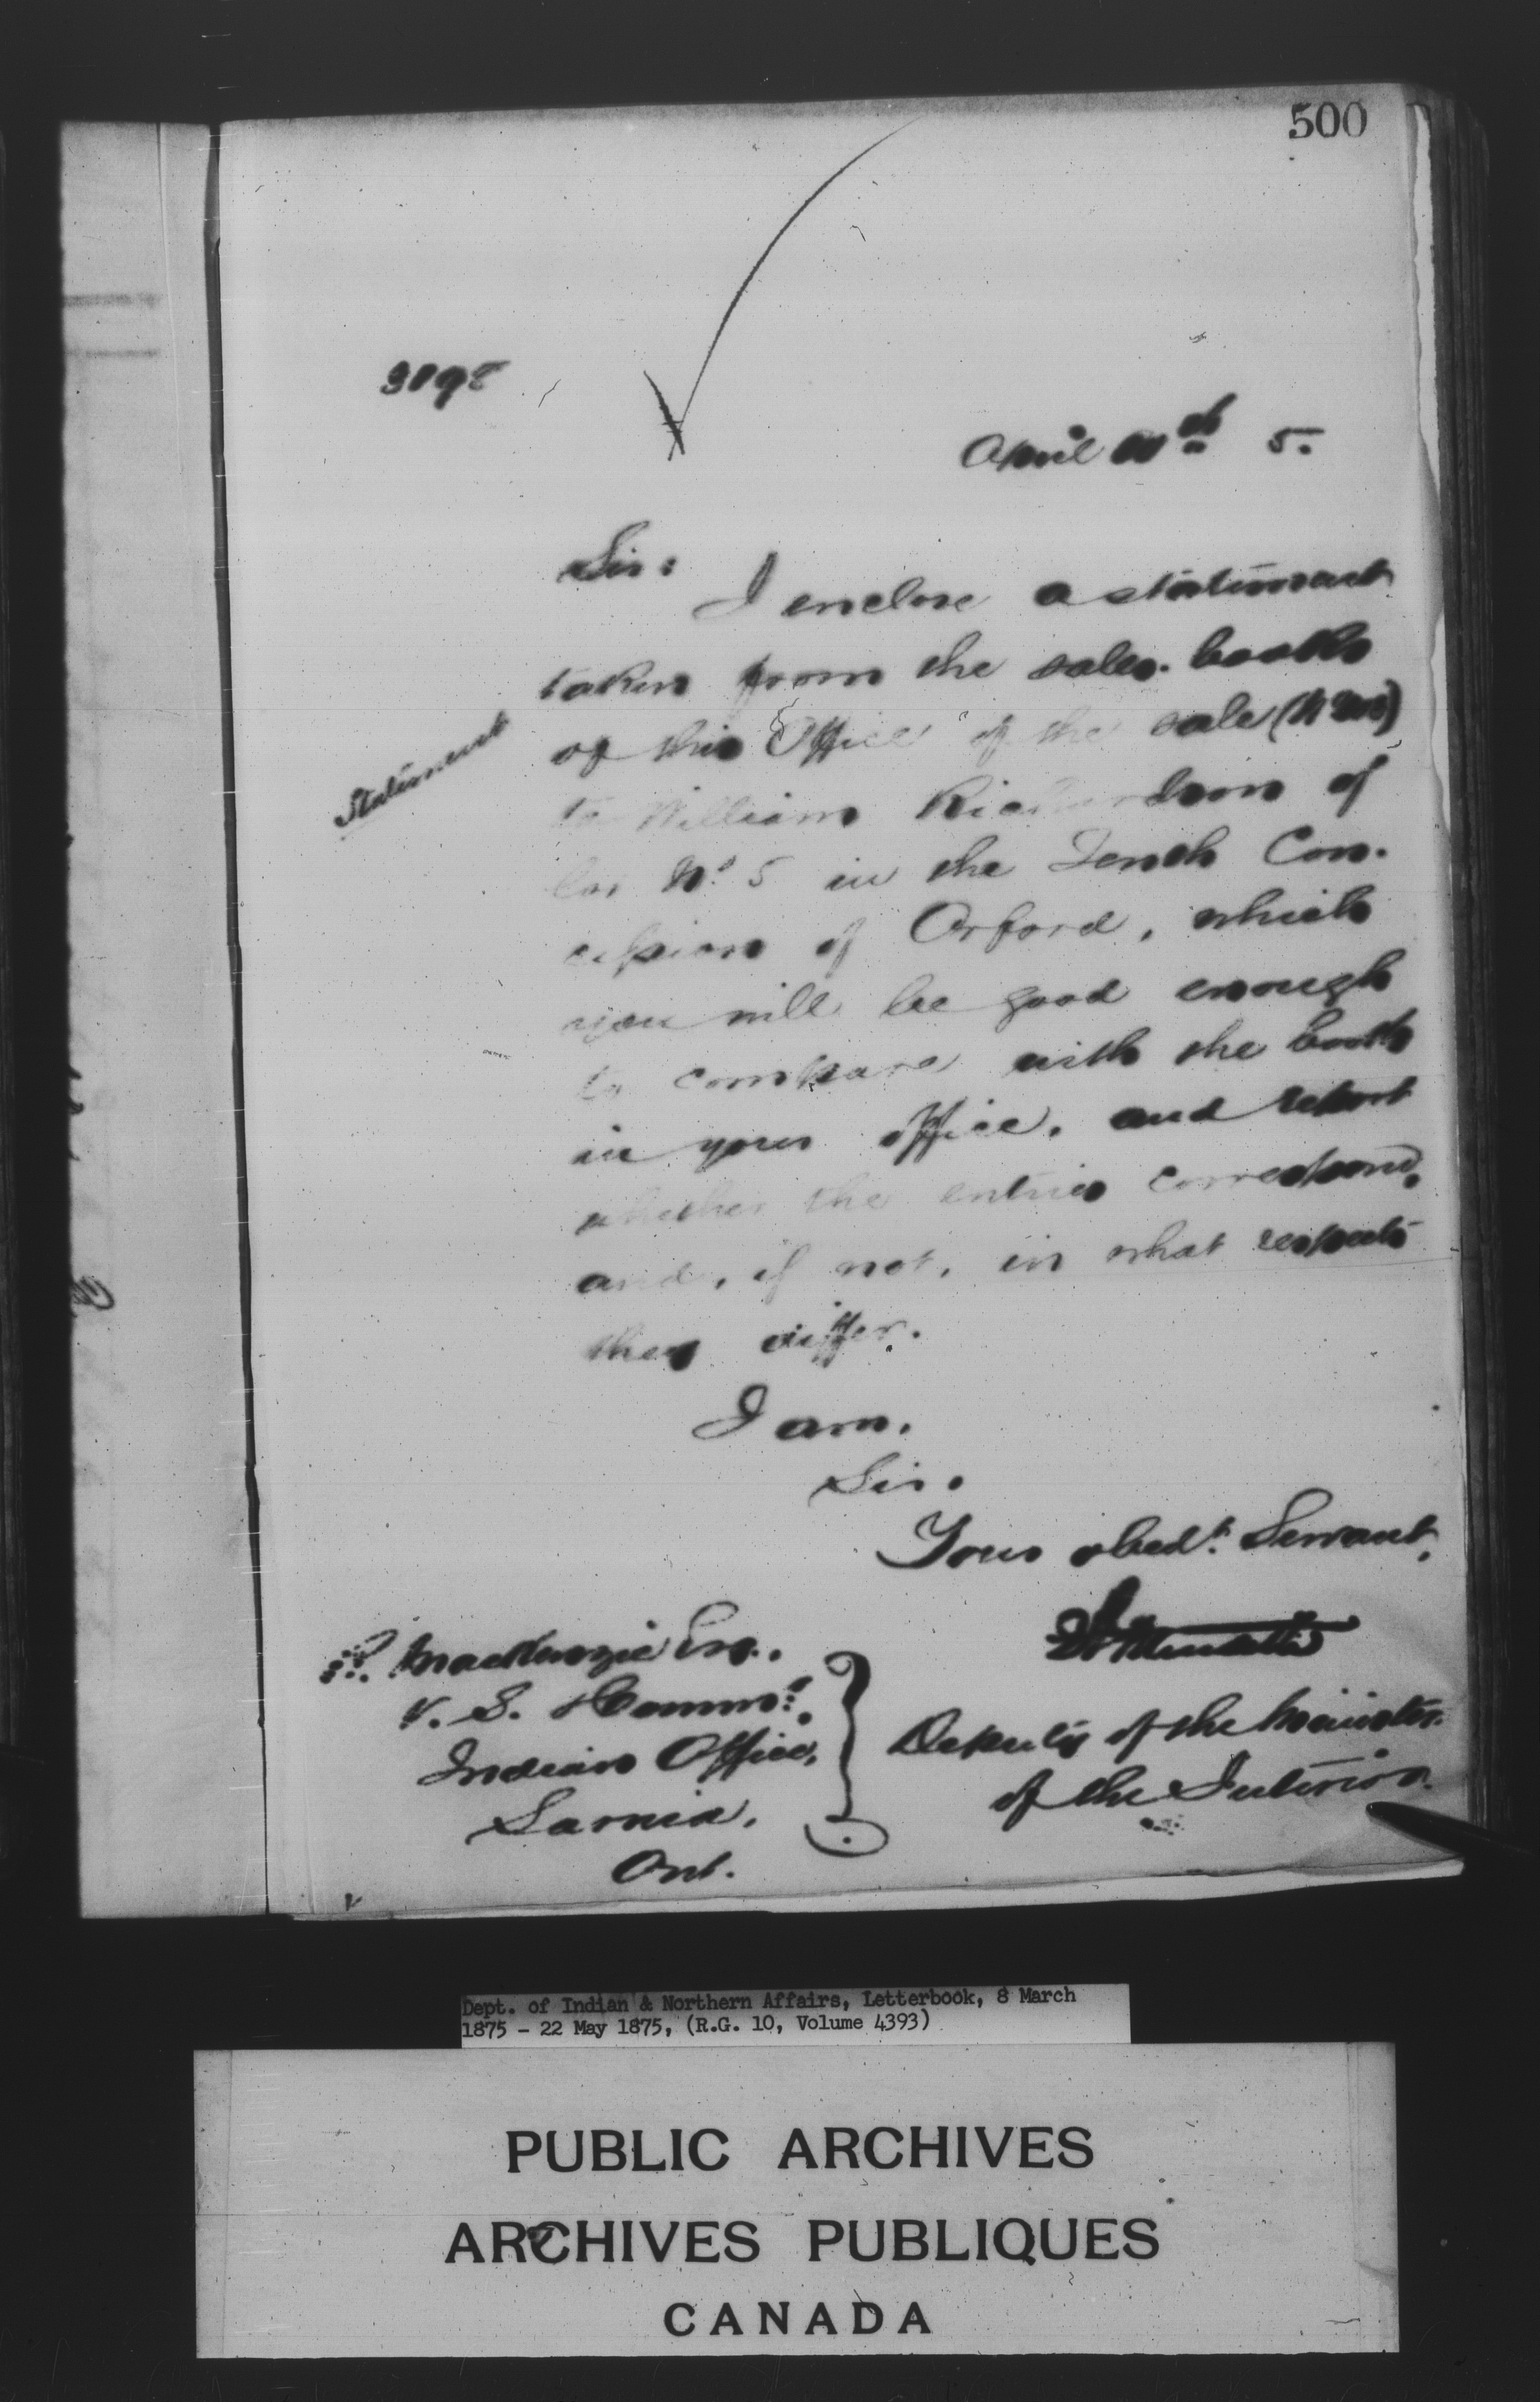 500
Sir:
I enclose a statement
taken from the sales books
of this Office of the sale
to William Richardson of
lot No. 5 in the Tenth Con-
cession of Orford, which
you will be good enough
to compare with the books
in your office, and report
whether the entries correspond,
and, if not, in what respects
they differ.
Statement
April 5.
I am,
Sir,
Your obedt. Servant,
Deputy of the Minister
of the Interior.
MacKenzie Esq.,
V. S. & Commr.,
Indian Office,
Sarnia,
Ont.
Dept. of Indian & Northern Affairs, Letterbook, 8 March
1875 - 22 May 1875, (R.G. 10, Volume 4393)
PUBLIC ARCHIVES
ARCHIVES PUBLIQUES
CANADA